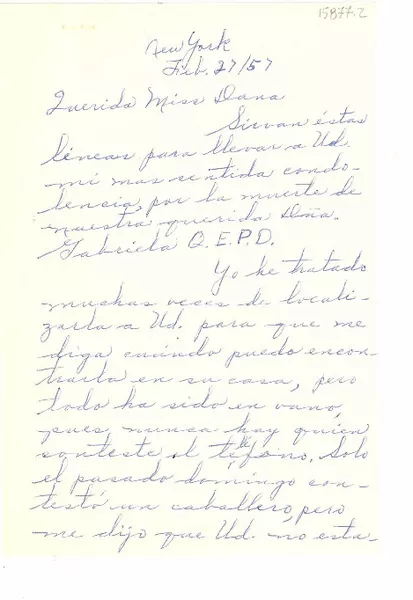 15877.2
New York
Feb. 27/57
Querida Miss Dana
Sirvan éstas
líneas para llevar a Ud.
mi mas sentida condo-
lencia, por la muerte de
nuestra querida Dña.
Gabriela Q.E.P.D.
Yo he tratado
muchas veces de locali-
zarla a Ud. para que me
diga cuándo puedo encon-
trarla en su casa, pero
todo ha sido en vano,
pues nunca hay quién
conteste el teléfono. Solo
el pasado domingo con-
testó un caballero, pero
me dijo que Ud. no esta-